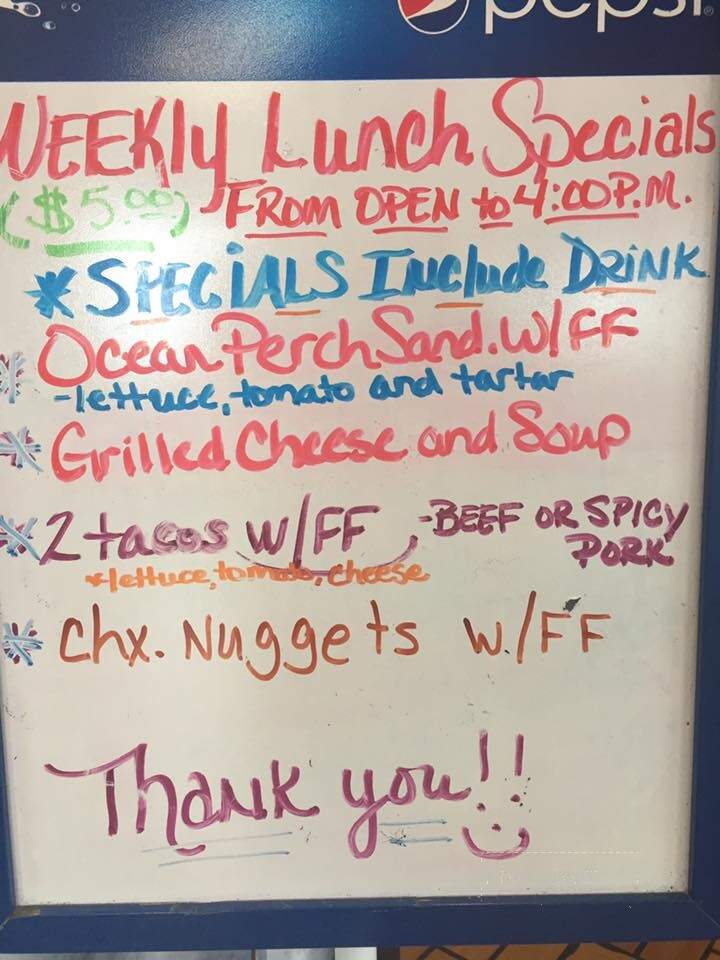 pepsi
WEEKly Lunch Specials
($5.00) FROM OPEN to 4:00P.M.
* SPECIALS INclude DRiNK
* Ocean Perch Sand. w/FF
-lettuce, tomato and tartar
* Grilled Cheese and Soup
* 2 tacos w/FF -BEEF OR SPICY
PORK
*lettuce, tomato, cheese
* Chx. Nuggets w./FF
Thank you!!